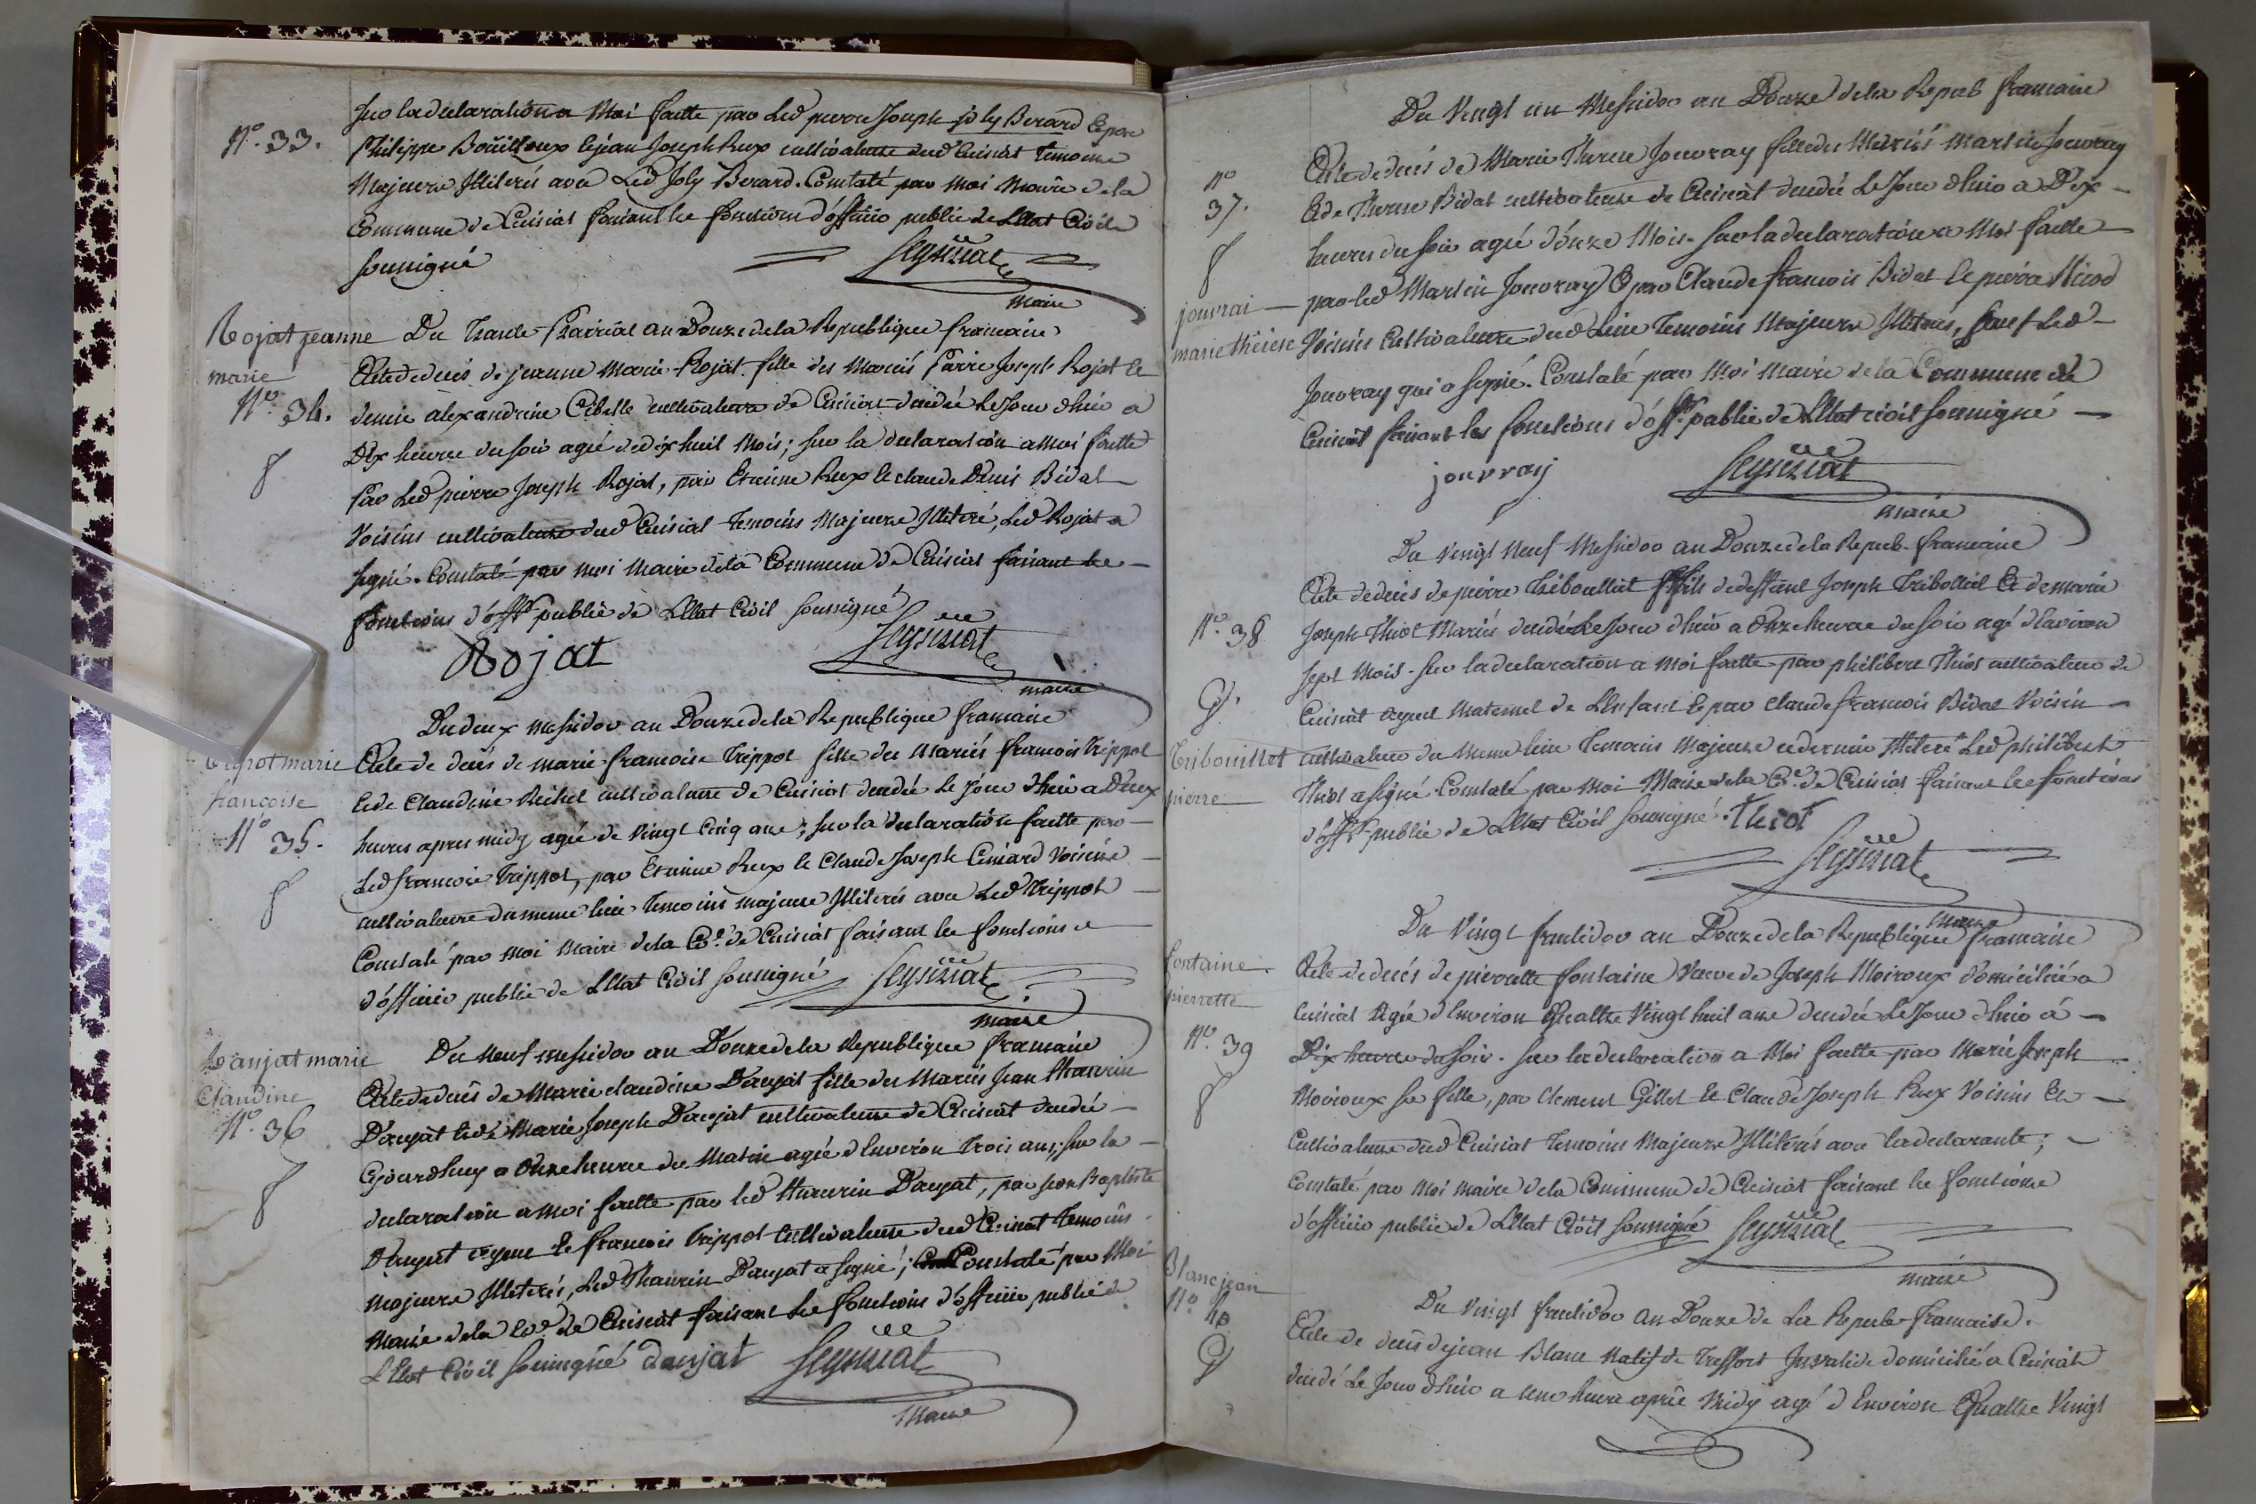 N.° 33.
sur la declaration a Moi faitte par Led pierre Joseph joly Berard Et par
Philippe Boüilloux Et jean Joseph Rux cultivateurs dud Cuisiat temoins
Majeurs Illiterés avec Led Joly Berard. Constaté par Moi Maire de la
Commune de Cuisiat faisant les fonctions d'officier public de L'Etat Civil
soussigné
Seysszuat
maire
Rojat jeanne
marie
N.° 34.
Du Trente Prairial an Douze de la Republique francaise
Acte de deces de jeanne Marie Rojat fille des Mariés Pairre Joseph Rojat Et
denise alexandrine Cibelle cultivateurs de Cuisiat decedée Le Jour dhier a
Dix heures du soir agée de dix huit Mois; sur la declaration a moi faitte
Par Led pierre Joseph Rojat, par Etienne Rux Et claude Denis Bidat
Voisins cultivateurs dud Cuisiat temoins Majeurs Illiteré, Led Rojat a
signé. Constaté par moi Maire de la Commune de Cuisiat faisant les
fonctions d'offr public de L'Etat Civil soussigné
Rojat
Seysszuat
maire
Trepot marie
francoise
N.° 35.
Du deux Messidor an Douze de la Republique francaise
Acte de deces de marie francoise Trippot fille des Mariés francois Trippot
Et de Claudine Reihet cultivateurs de Cuisiat decedée Le Jour dhier a Deux
heures apres midy agée de Vingt Cinq ans; sur la declaration faitte par
Led francois Trippot, par Etienne Rux Et Claude Joseph Voisins
cultivateurs du meme lieu temoins majeurs Illiterés avec Led Trippot
Constaté par moi Maire de la Cne de Cuisiat faisant les fonctions
d'officier public de L'Etat Civil soussigné
Seysszuat
maire
Danjat marie
Claudine
N.° 36
Du Neuf messidor an Douze de la Republique francaise
Acte de deces de Marie claudine Danjat fille des Mariés Jean Thaurin
Danjat Et de Marie Joseph Danjat cultivateurs de Cuisiat decedée
Cejourdhuy a Onze heures du Matin agée d'Environ Trois ans; sur la
declaration a moi faitte par led Thaurin Danjat, par jean Baptiste
Danjat ayeux Et francois Trippot Cultivateurs dud Cuisiat temoins
majeurs Illiterés, Led Thaurin Danjat a signé; Constaté par Moi
Maire de la Cne de Cuisiat faisant Les fonctions d'officier public de
L'Etat Civil soussigné danjat Seysszuat
Maire
N°
37.
jouvrai
marie thérèse
Du Vingt un Messidor an Douze de la Repub francaise
Acte de deces de Marie Therese Jouvray fille des Mariés Martin Jouvray
Et de Therese Bidat cultivateurs de Cuisiat decedée Le Jour dhier a Dix
heures du soir agée d'onze Mois. sur la declaration a Moi faitte
par led Martin Jouvray Et par Claude francois Bidat Et pierre Nicod
Voisins Cultivateurs dud Lieu temoins Majeurs Illiterés, sauf Led
Jouvray qui a signé. Constaté par Moi Maire de la Commune de
Cuisiat faisant les fonctions d'offr public de L'Etat civil soussigné
jouvray
Seysszuat
maire
N.° 38
Tribouillet
pierre
Du Vingt Neuf Messidor an Douze de la Repub francaise
Acte de deces de pierre Triboulliet fils de deffunt Joseph Tribolliet Et de marie
Joseph Thiot Mariés decedé Le Jour dhier a Onze heures du soir agé d'Environ
sept Mois. sur la declaration a moi faitte par philibert Thiot cultivateur de
Cuisiat ayeul Maternel de L'Enfant Et par claude francois Bidat Voisin
cultivateur du meme lieu temoins Majeurs ce dernier Illiteré Led philibert
Thiot a signé. Constaté par Moi Maire de la Cne de Cuisiat faisant les fonctions
d'offr public de L'Etat Civil soussigné. Thiot
Seysszuat
maire
fontaine
pierrette
N.° 39
Du Vingt fructidor an Douze de la Republique francaise
Acte de deces de pierrette fontaine Veuve de Joseph Moiroux domiciliée a
Cuisiat Agée d'Environ Quattre Vingt huit ans decedée Le Jour dhier á
Dix heures du soir. sur la declaration a Moi faitte par Marie Joseph
Moiroux sa fille, par Clement Gillet Et Claude Joseph Rux Voisins Et
Cultivateurs dud Cuisiat temoins Majeurs Illiterés avec la declarante;
Constaté par Moi maire de la Commune de Cuisiat faisant les fonctions
d'officier public de L'Etat Civil soussigné
Seysszuat
maire
Blanc jean
N.° 40
Du Vingt fructidor an Douze de La Repub francaise.
Acte de deces de jean Blanc Natif de Treffort Invalide domicilié a Cuisiat
decedé Le Jour dhier a une heure après Midy agé d'Environ Quattre Vingt